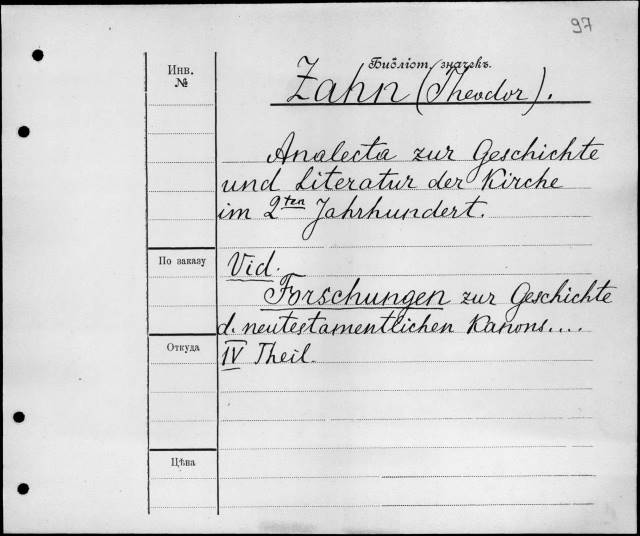 97
Библіот. значекъ.
Инв.
№
Zahn (Theodor).
Analecta zur Geschichte
und Literatur der Kirche
im 2ten Jahrhundert.
По заказу
Vid.
Forschungen zur Geschichte
d. neutestamentlichen Kanons....
Откуда
IV Theil.
Цѣна